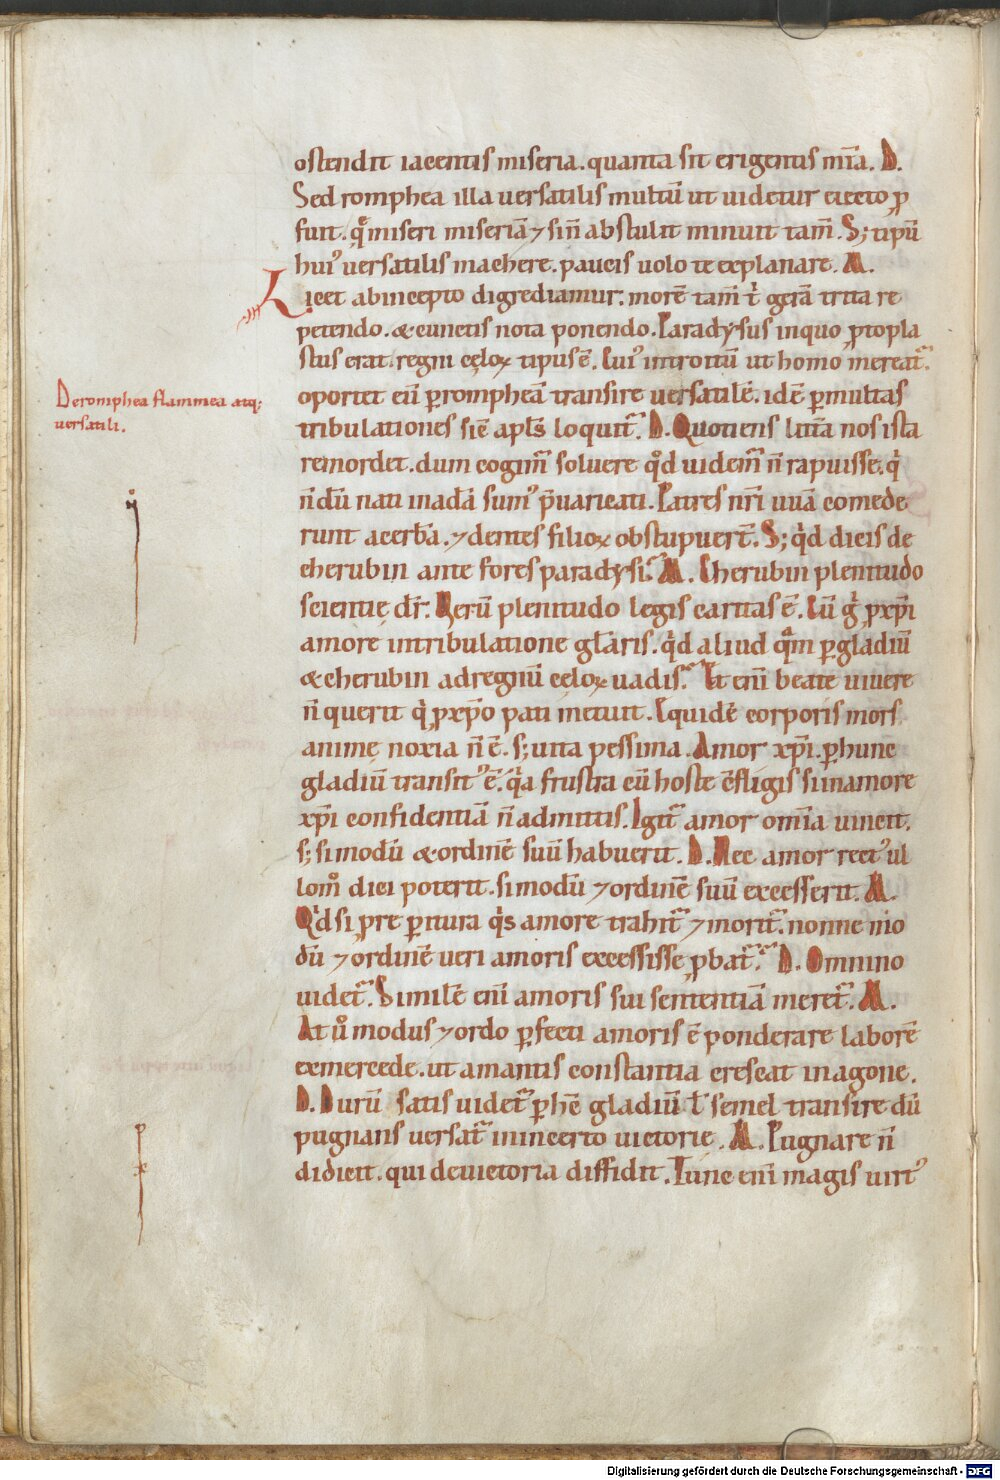 ostendit iacentis miseria. quanta sit erigentis mīa. D.
Sed romphea illa versatilis multū ut videtur eiecto ꝓ
fuit. qͣ miseri miseriā ⁊ si n̄ abstulit minuit tam̄. S; tipū
huiꝰ versatilis machere. paucis volo te explanare. M.
Licet ab incepto digrediamur. morē tam̄ t̄ gerā trita re
petendo. & cunctis nota ponendo. Paradysus in quo ꝓtopla
stus erat. regni cęloꝝ tipus ē. Cuiꝰ introitū ut homo mereat᷑.
De romphea flammea atq;
versatili.
oportet eū ꝑ rompheā transire versatilē. id ē ꝑ multas
tribulationes sic̄ apl̄s loquit᷑. D. Quotiens litīa nos ista
remordet. dum cogim᷑ solvere qͦd videm᷑ n̄ rapuisse. qͥ
n̄dū nati in adā sumꝰ p̄varicati. Patres nr̄i uvā comede
runt acerbā. ⁊ dentes filioꝝ obstupuer̄t. S; qͥd dicis de
cherubin ante fores paradysi. M. Cherubin plenitudo
scientię dr̄. Verū plenitudo legis caritas ē. Cū gͥ ꝓ xp̄i
amore in tribulatione glāris. qͥd aliud qͣm ꝑ gladiū
& cherubin ad regnū cęloꝝ vadis. Et eni beate vivere
n̄ querit qͥ ꝓ xp̄o pati metuit. Equidē corporis mors
animę noxia n̄ ē. s; vita pessima. Amor xp̄i. ꝑ hunc
gladiū transitꝰ ē. qͥa frustra cū hoste c̄fligis si in amore
xp̄i confidentiā n̄ admittis. Igit᷑ amor om̄ia vincit.
s; si modū & ordinē suū habuerit. D. Nec amor rectꝰ ul
lomͦ dici poterit. si modū ⁊ ordinē suū excesserit. M.
Qͥd si p̱ re ꝑitura qͥs amore trahit᷑ ⁊ morit᷑. nonne mo
dū ⁊ ordinē veri amoris excessisse ꝓbat᷑. D. Omnino
videt᷑. Similē eni amoris sui sententiā meret᷑. M.
At uͦ modus ⁊ ordo ꝑfecti amoris ē ponderare laborē
ex mercede. ut amantis constantia crescat in agone.
D. Durū satis videt᷑ ꝑ hc̄ gladiū ł semel transire dū
pugnans versat᷑ in incerto victorie. M. Pugnare n̄
didicit. qui de victoria diffidit. Tunc eni magis virtꝰ
Digitalisierung gefördert durch die Deutsche Forschungsgemeinschaft - DFG